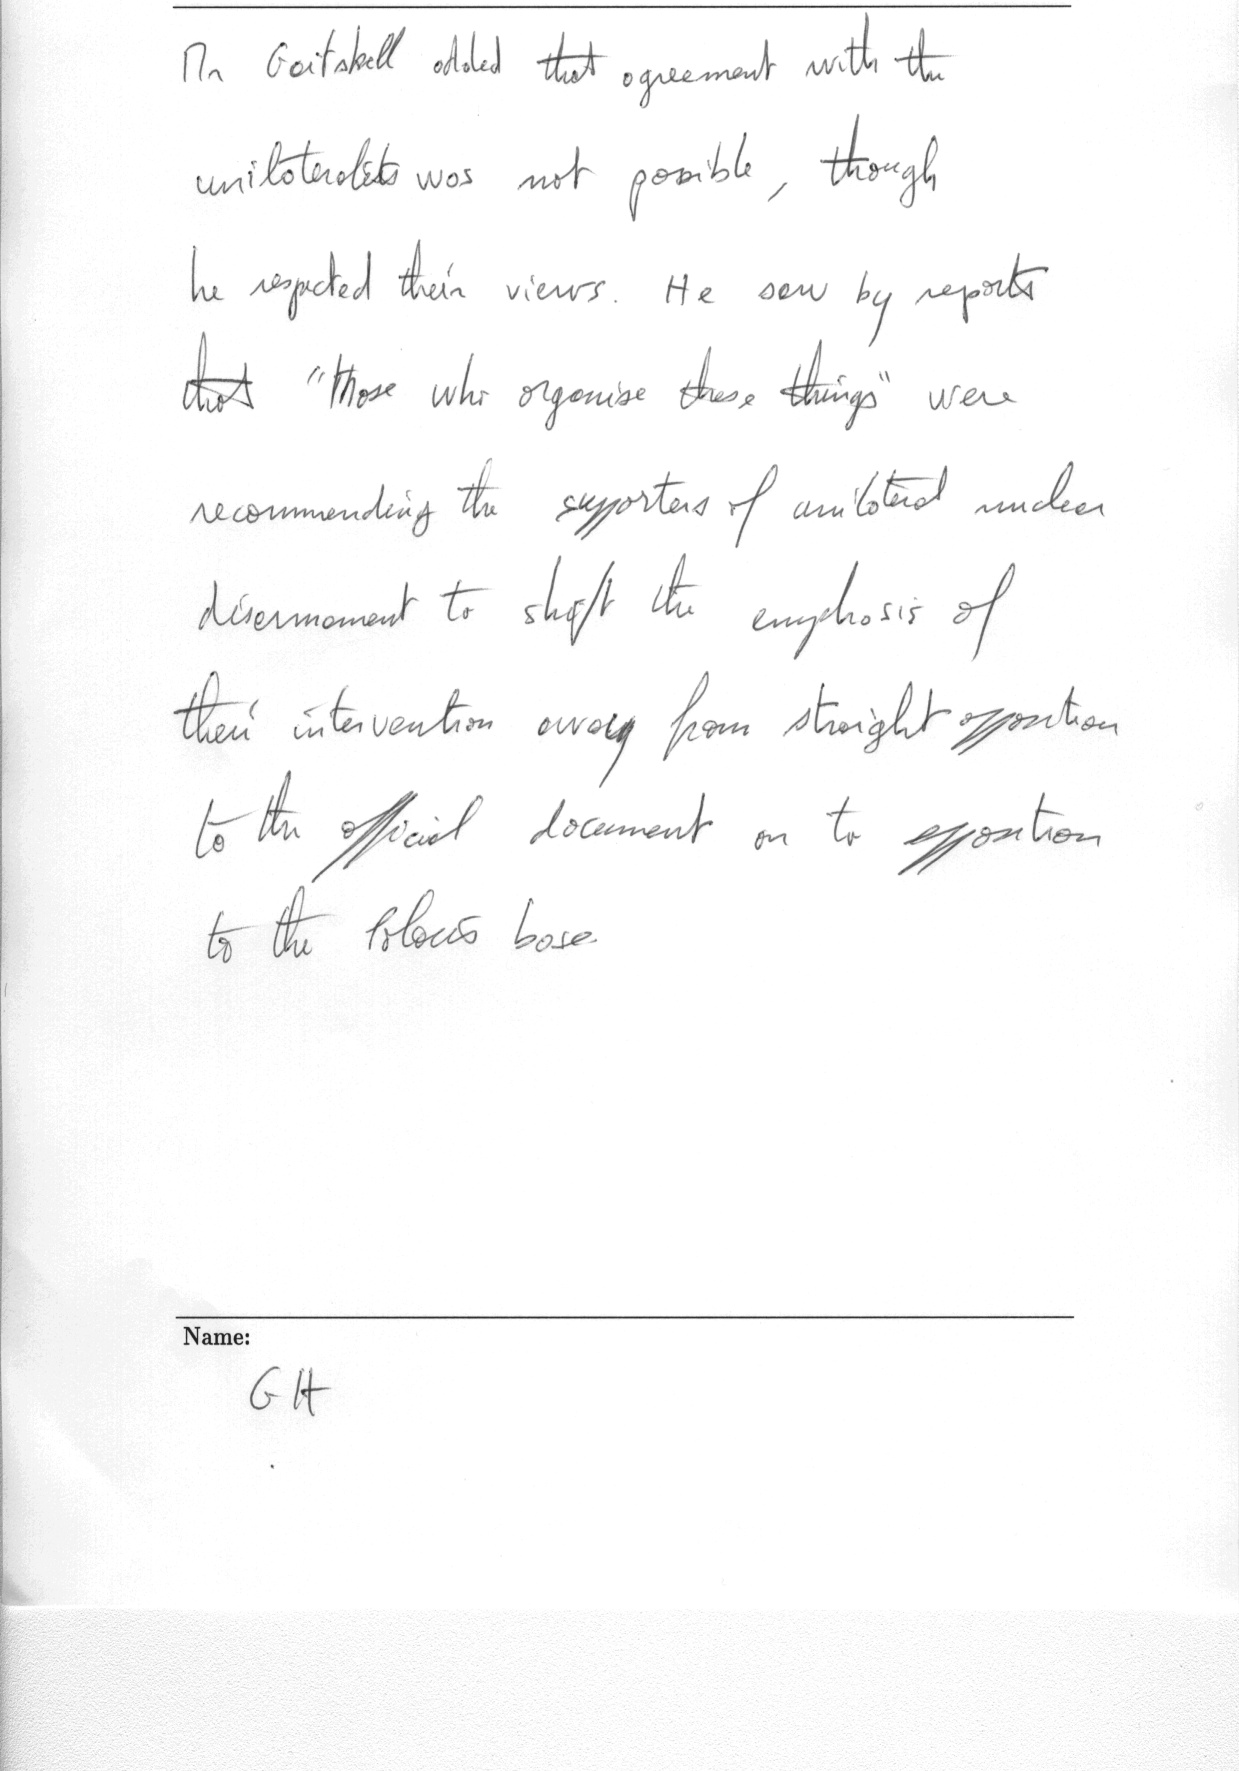 Mr Gaitskell added that agreement with the
unilateralists was not possible, though
he respected their views. He saw by reports
that "those who organise these things" were
recommending the supporters of unilateral nuclear
disarmament to shift the emphasis of
their intervention away from straight opposition
to the official document on to opposition
to the Polaris base.
Name:
GH